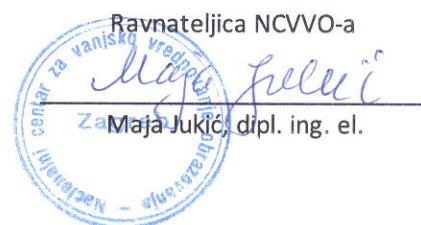 Ravnateljica NCVVO-a
Maja Jukić
Maja Jukić, dipl. ing. el.
Nacionalni centar za vanjsko vrednovanje obrazovanja
Zagreb